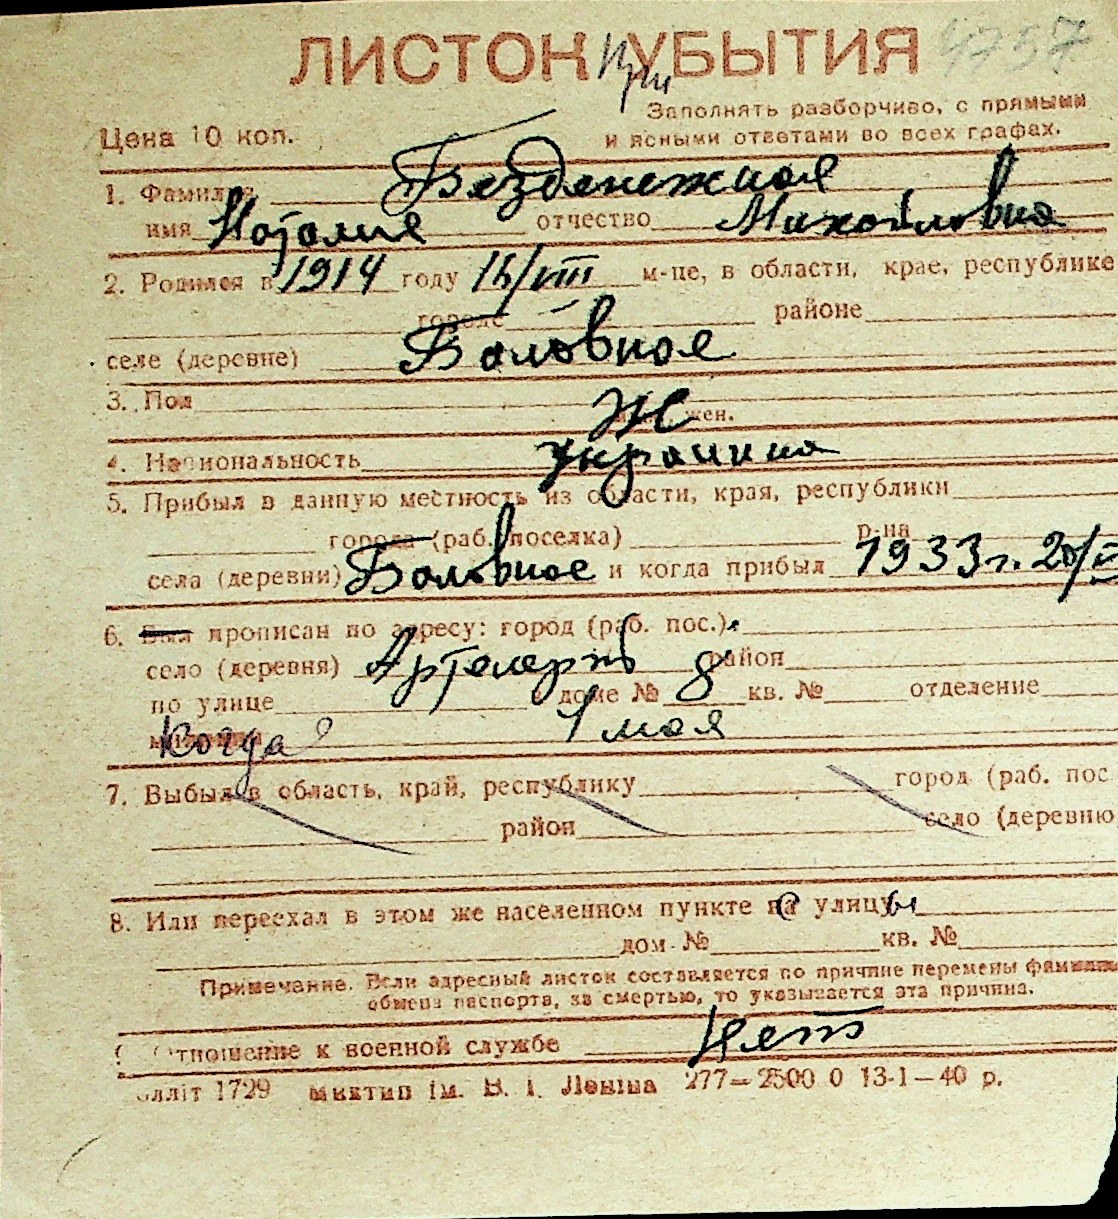 ЛИСТОК При УБЫТИЯ 4757
Заполнять разборчиво, с прямыми
Цена 10 коп. и ясными ответами во всех графах.
1. Фамилия Безденежная
имя Наталия отчество Михайловна
2. Родился в 1914 году 15/VIII м-це, в области, крае, республике
городе районе
селе (деревне) Баловное
3. Пол Ж жен.
4. Национальность украинка
5. Прибыл в данную местность из области, края, республики
города (раб. поселка) р-на
села (деревни) Баловное и когда прибыл 1933 г. 20/
6. Был прописан по адресу: город (раб. пос.)
село (деревня) район
по улице в доме № 8 кв. № отделение
Когда 1 мая
7. Выбыл в область, край, республику город (раб. пос
район село (деревню
8. Или переехал в этом же населенном пункте на улицу
дом № кв. №
Примечание. Если адресный листок составляется по причине перемены фамилии
обмена паспорта, за смертью, то указывается эта причина.
Отношение к военной службе Нет
лліт 1729 Миктип ім. В. І. Леніна 277—2500 0 13-1—40 р.